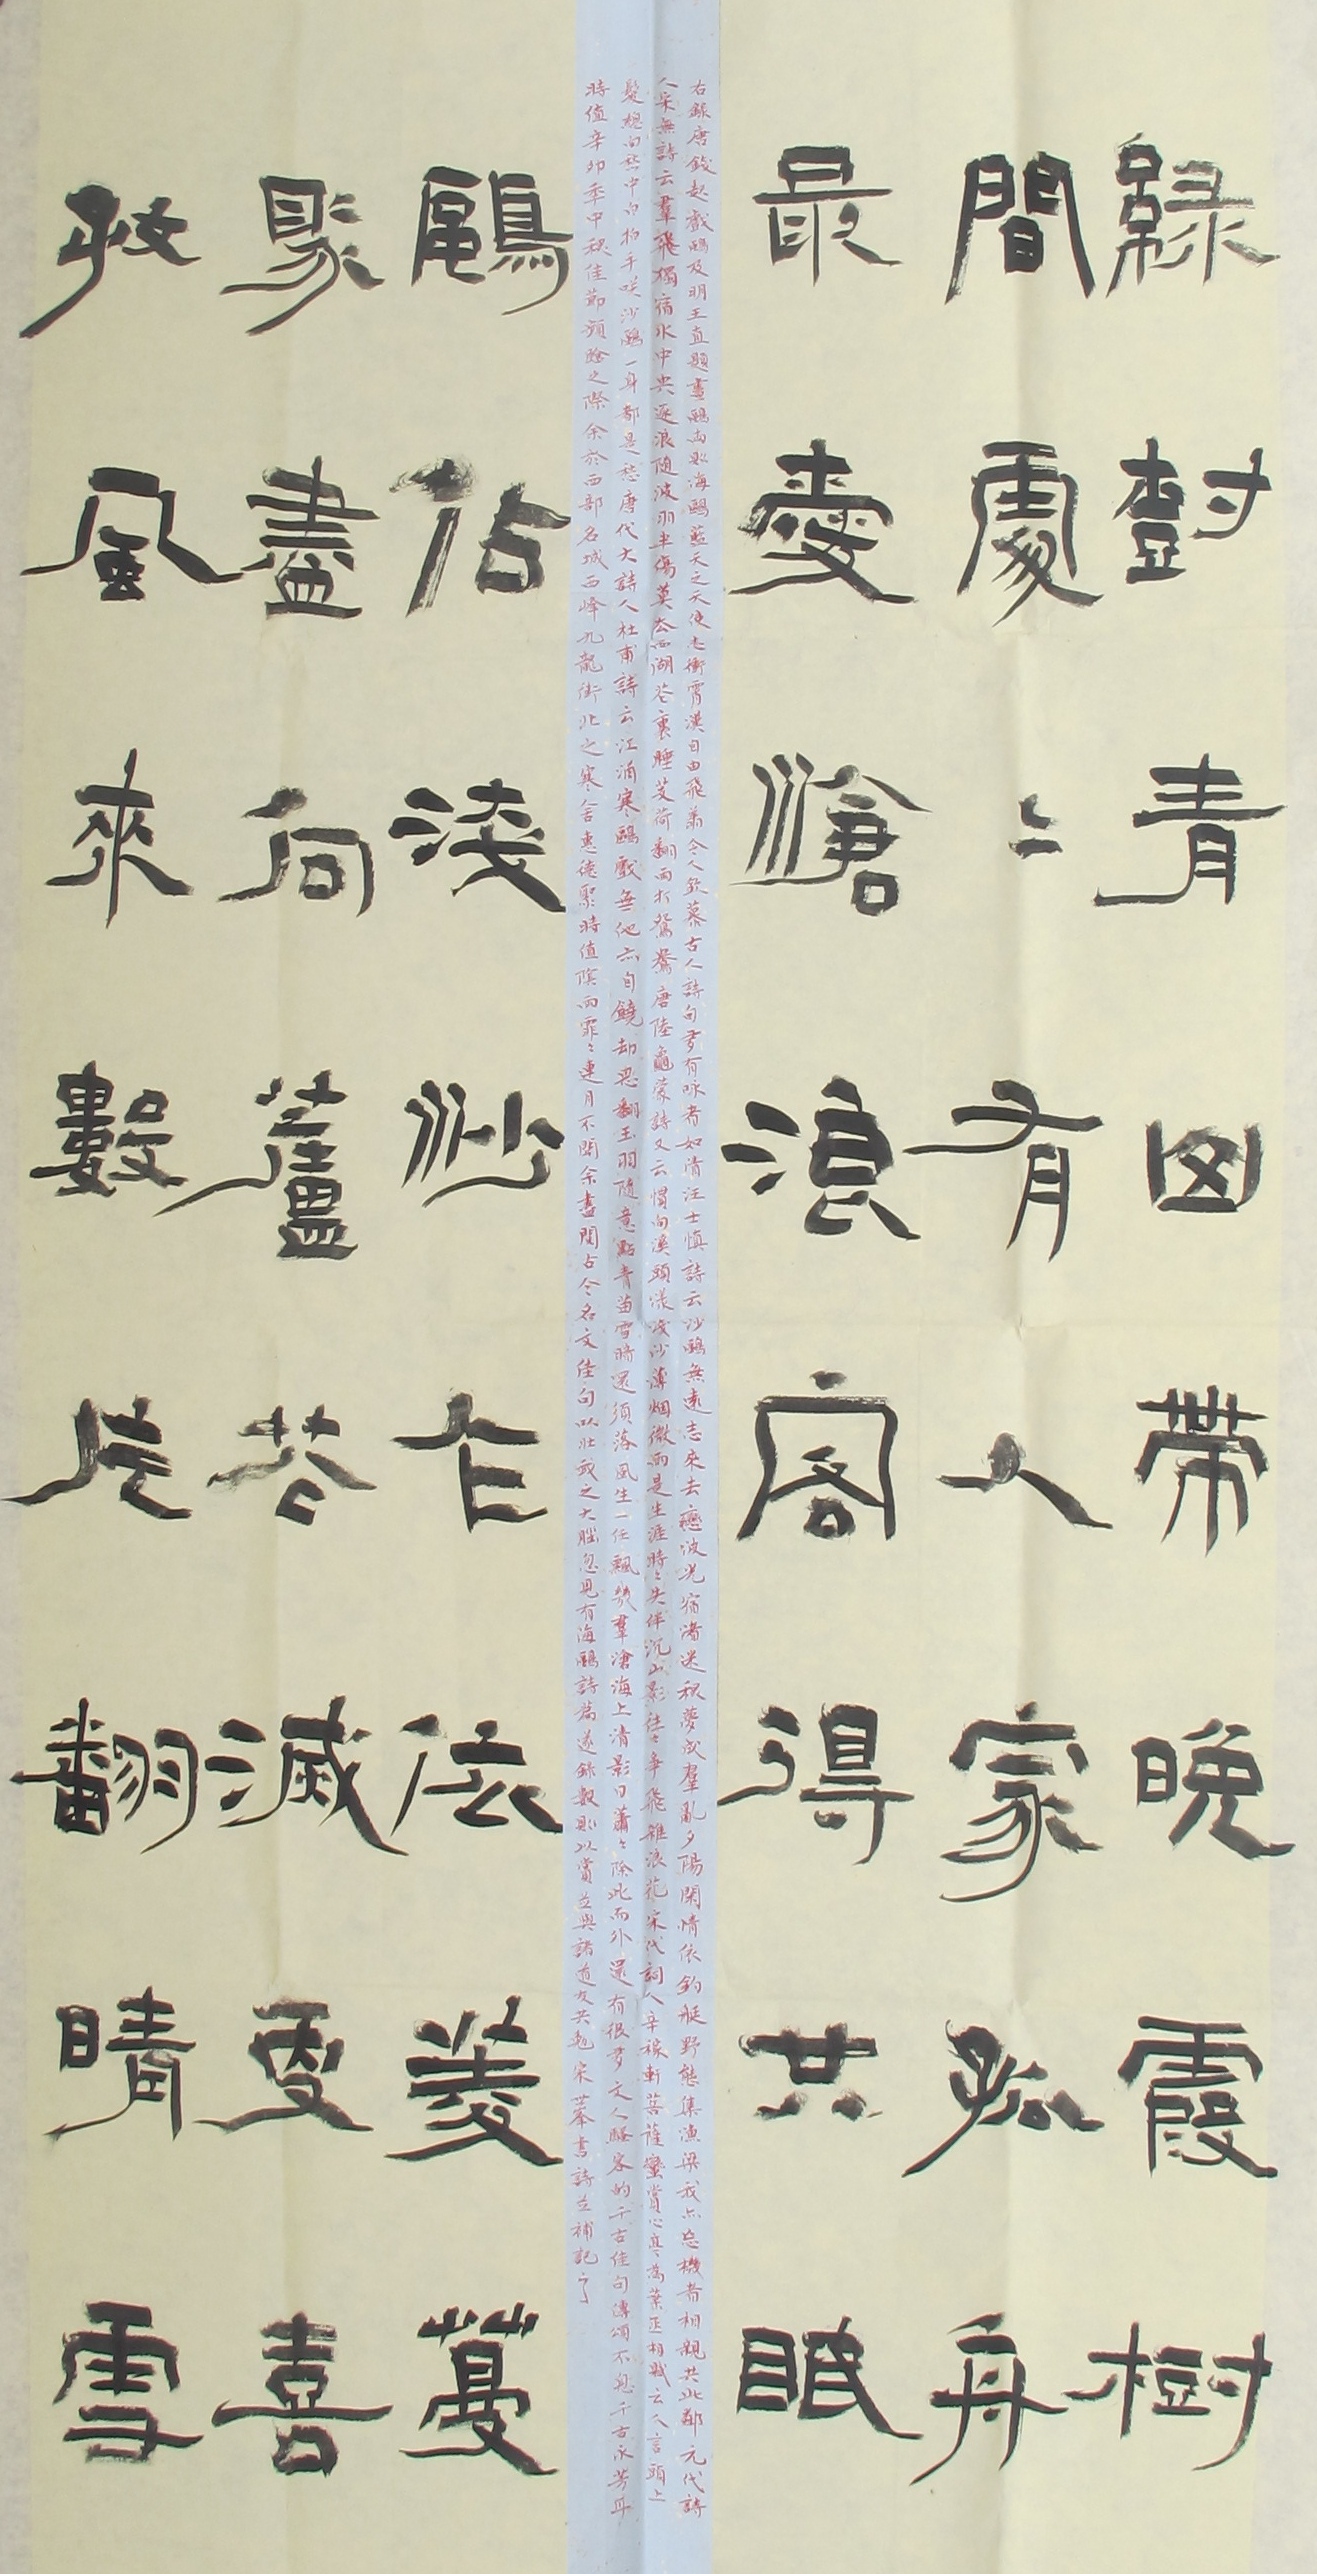 綠樹青山帶晚霞樹
間處〻有人家孤舟
最愛滄浪客得共眠
右錄唐錢起戲鷗及明王直題畫鷗兩則海鷗藍天之天使也衝霄漢自由飛翔令人欽慕古人詩句多有咏者如清汪士慎詩云沙鷗無遠志來去戀波光宿渚迷秋夢成羣亂夕陽閑情依釣艇野態集漁梁我亦忘機者相親共此鄉元代詩
人宋無詩云羣飛獨宿水中央逐浪隨波羽半傷莫去西湖花裏睡芰荷翻雨打鴛鴦唐陸龜蒙詩又云慣向溪頭漾淺沙薄烟微雨是生涯時〻失伴沉山影往〻爭飛雜浪花宋代詞人辛稼軒菩薩蠻賞心亭為葉丞相賦云人言頭上
髮總向愁中白拍手咲沙鷗一身都是愁唐代大詩人杜甫詩云江浦寒鷗戲無他亦自饒却思翻玉羽隨意點青苗雪暗還須落風生一任飄幾羣滄海上清影日蕭〻除此而外還有很多文人騷客的千古佳句傳頌不息千古永芳耳
時值辛卯季中秋佳節頻臨之際余於西部名城西峰九龍街北之寒舍惠德聚時值陰雨霏〻連月不開余盡閱古今名文佳句以壯我之大腦忽見有海鷗詩篇遂錄數則以賞並與諸道友共勉宋蓁書詩并補記之
鷗佔淺沙乍依菱蔓
聚盡向蘆花滅更喜
好風來數片翻晴雪